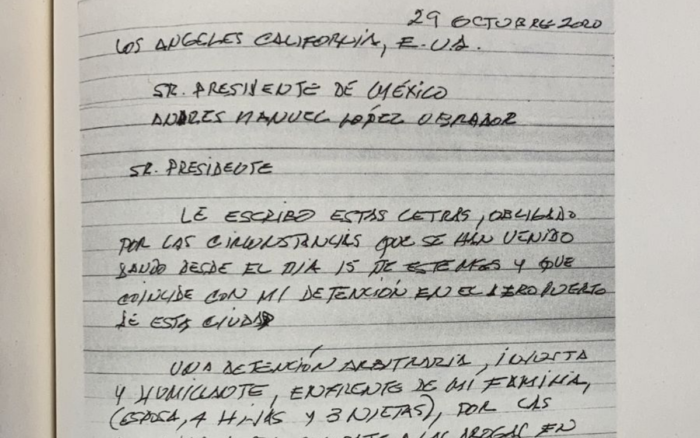 29 OCTUBRE 2020
LOS ANGELES CALIFORNIA, E.UA.
SR. PRESIDENTE DE MÉXICO
ANDRES MANUEL LÓPEZ OBRADOR
SR. PRESIDENTE
LE ESCRIBO ESTAS LETRAS, OBLIGADO
POR LAS CIRCUNSTANCIAS QUE SE HAN VENIDO
DANDO DESDE EL DIA 15 DE ESTE MES Y QUE
COINCIDE CON MI DETENCIÓN EN EL AEROPUERTO
DE ESTA CIUDAD
UNA DETENCIÓN ARBITRARIA, INJUSTA
Y HUMILLANTE, ENFRENTE DE MI FAMILIA,
(ESPOSA, 4 HIJAS Y 3 NIETAS), POR LAS
A LAS DROGAS EN